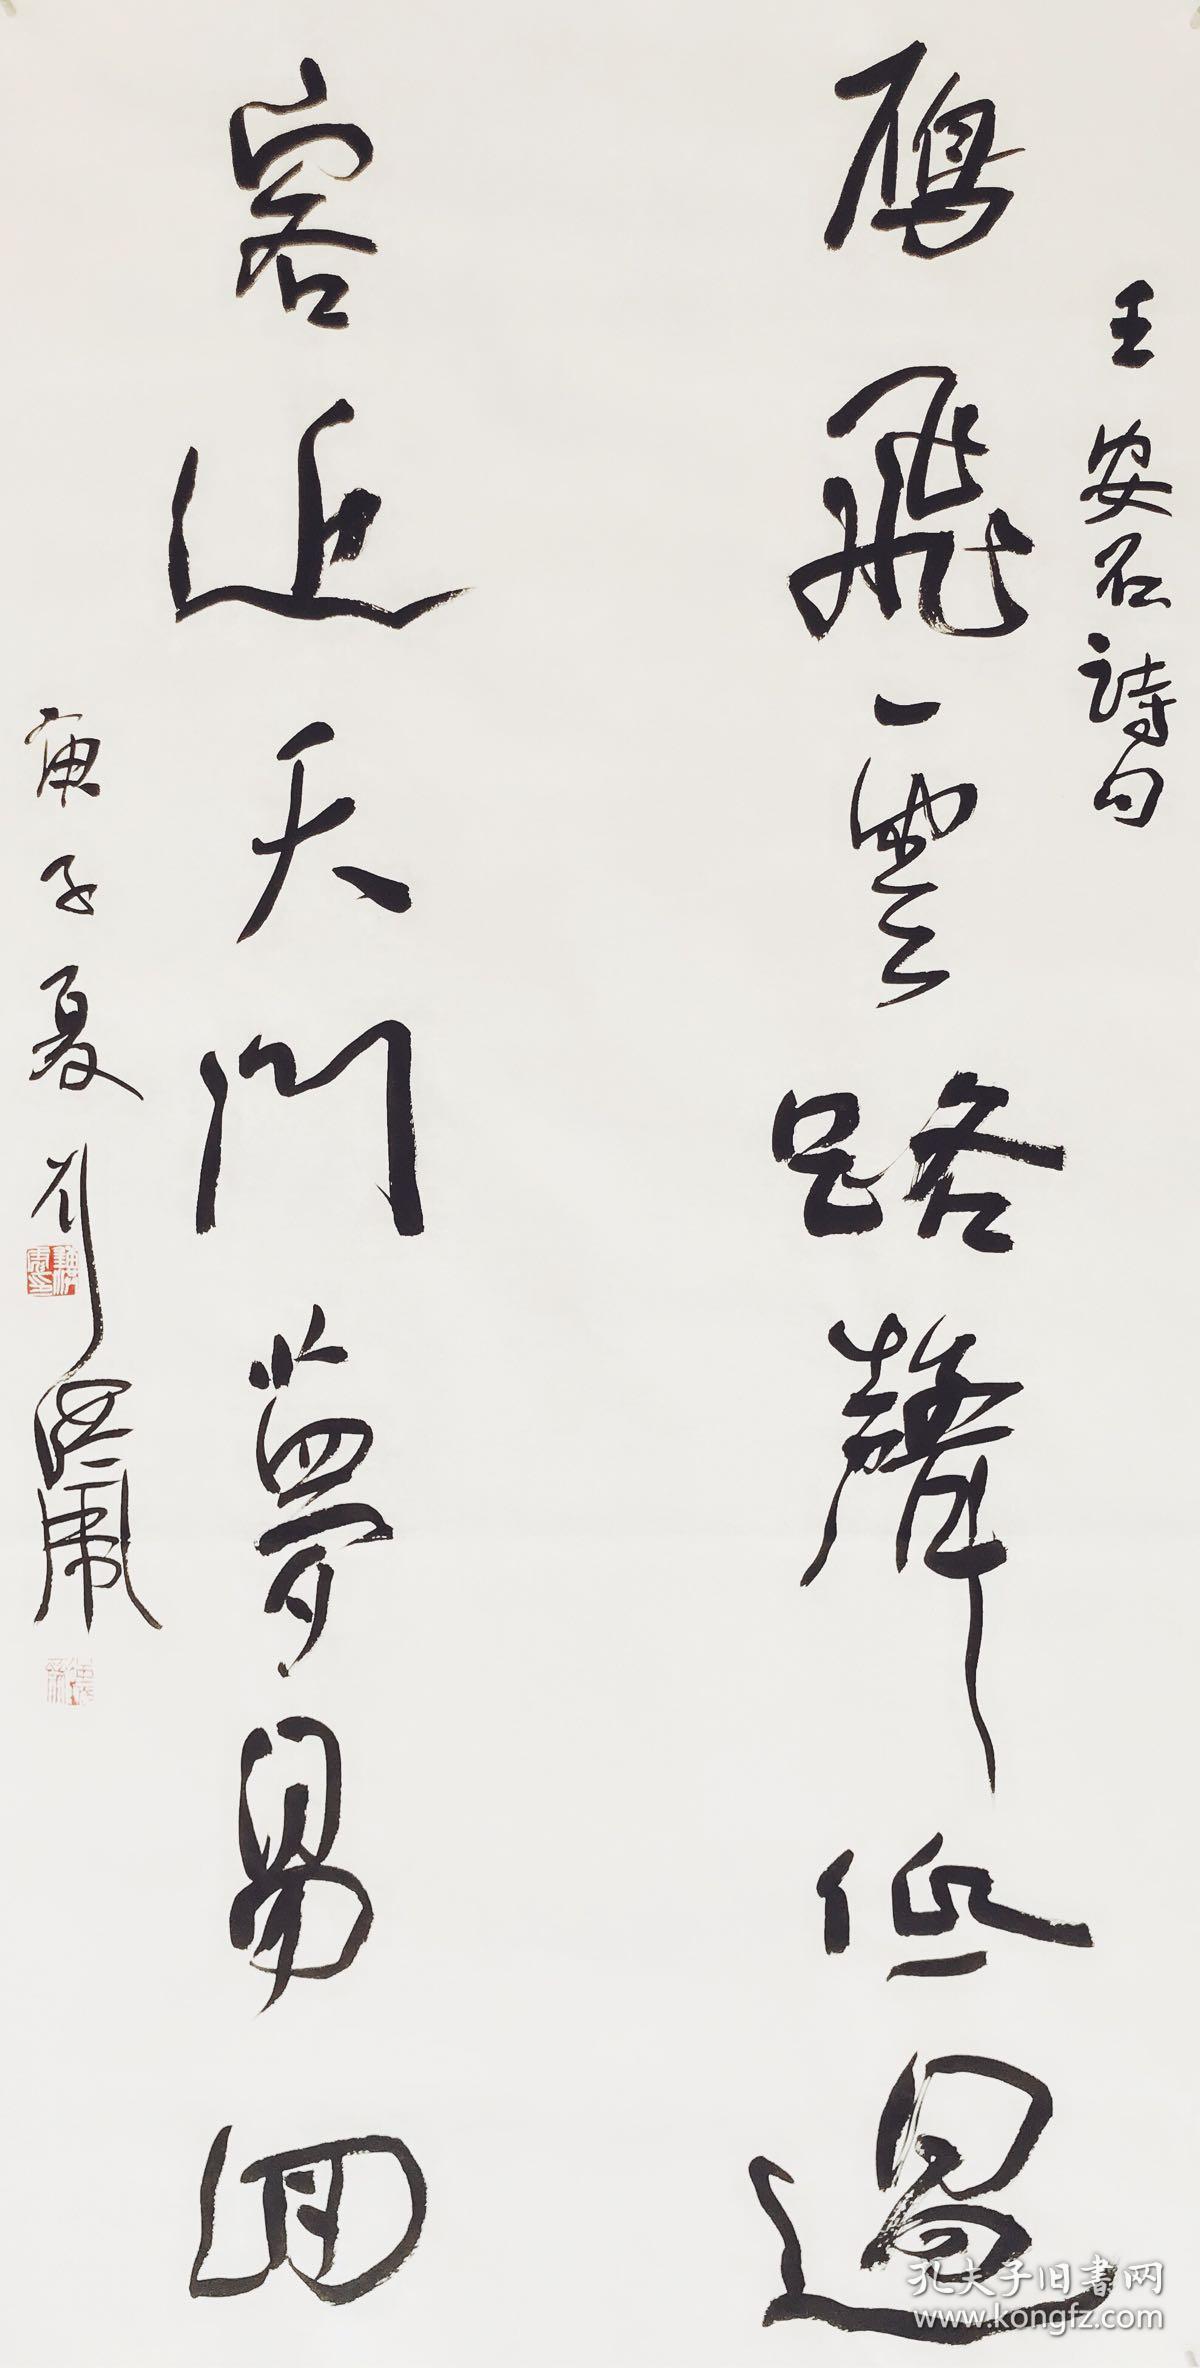 王安石詩句
鴈飛雲路聲低過
客近天門夢易回
庚子夏
孔夫子旧书网
www.kongfz.com